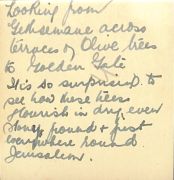 Looking from
Gethsemane across
terraces of Olive trees
to Golden Gate
It is so surprising to
see how these trees
flourish in dry even
stoney ground & just
everywhere round
Jerusalem.